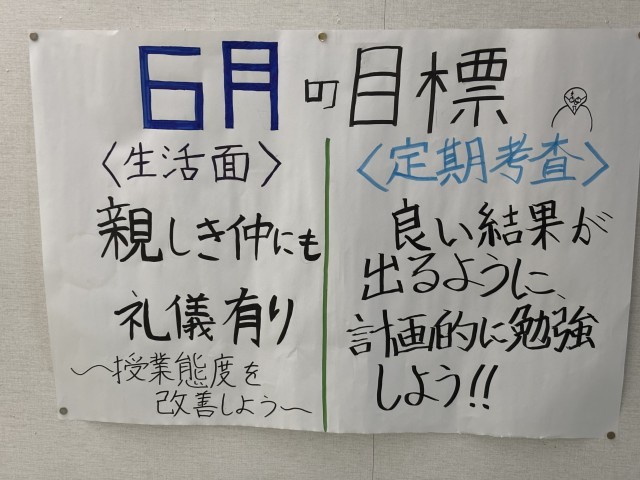 6月の目標
〈生活面〉
親しき仲にも
礼儀有り
〜授業態度を
改善しよう〜
〈定期考査〉
良い結果が
出るように、
計画的に勉強
しよう!!